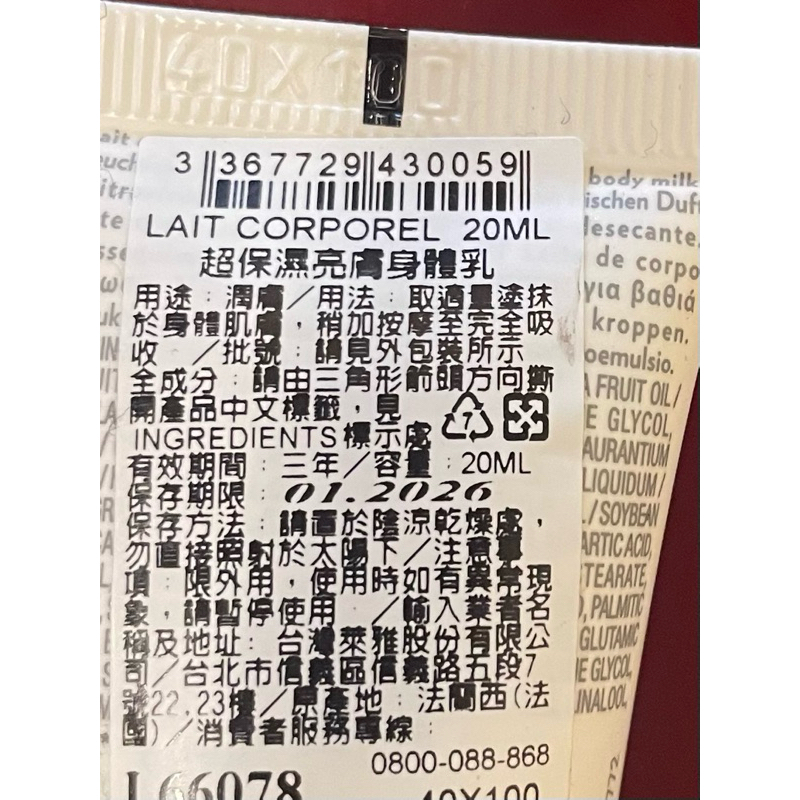 40X100
3 367729 430059
LAIT CORPOREL 20ML
超保濕亮膚身體乳
用途：潤膚／用法：取適量塗抹
於身體肌膚，稍加按摩至完全吸
收 ／批號：請見外包裝所示
全成分：請由三角形箭頭方向撕
開產品中文標籤，見
INGREDIENTS標示處
7
有效期間：三年／容量：20ML
保存期限：01.2026
保存方法：請置於陰涼乾燥處，
勿直接照射於太陽下／注意事
項：限外用，使用時如有異常現
象，請暫停使用 ／輸入業者名
稱及地址：台灣萊雅股份有限公
司／台北市信義區信義路五段7
號22,23樓／原產地：法蘭西（法
國）／消費者服務專線：
0800-088-868
L66078
40X100
body milk
ischen Duft
desecante,
de corpo
για βαθιά
kroppen.
oemulsio.
FRUIT OIL /
GLYCOL,
AURANTIUM
LIQUIDUM /
/ SOYBEAN
ARTIC ACID,
STEARATE,
PALMITIC
GLUTAMIC
GLYCOL,
LINALOOL,
772